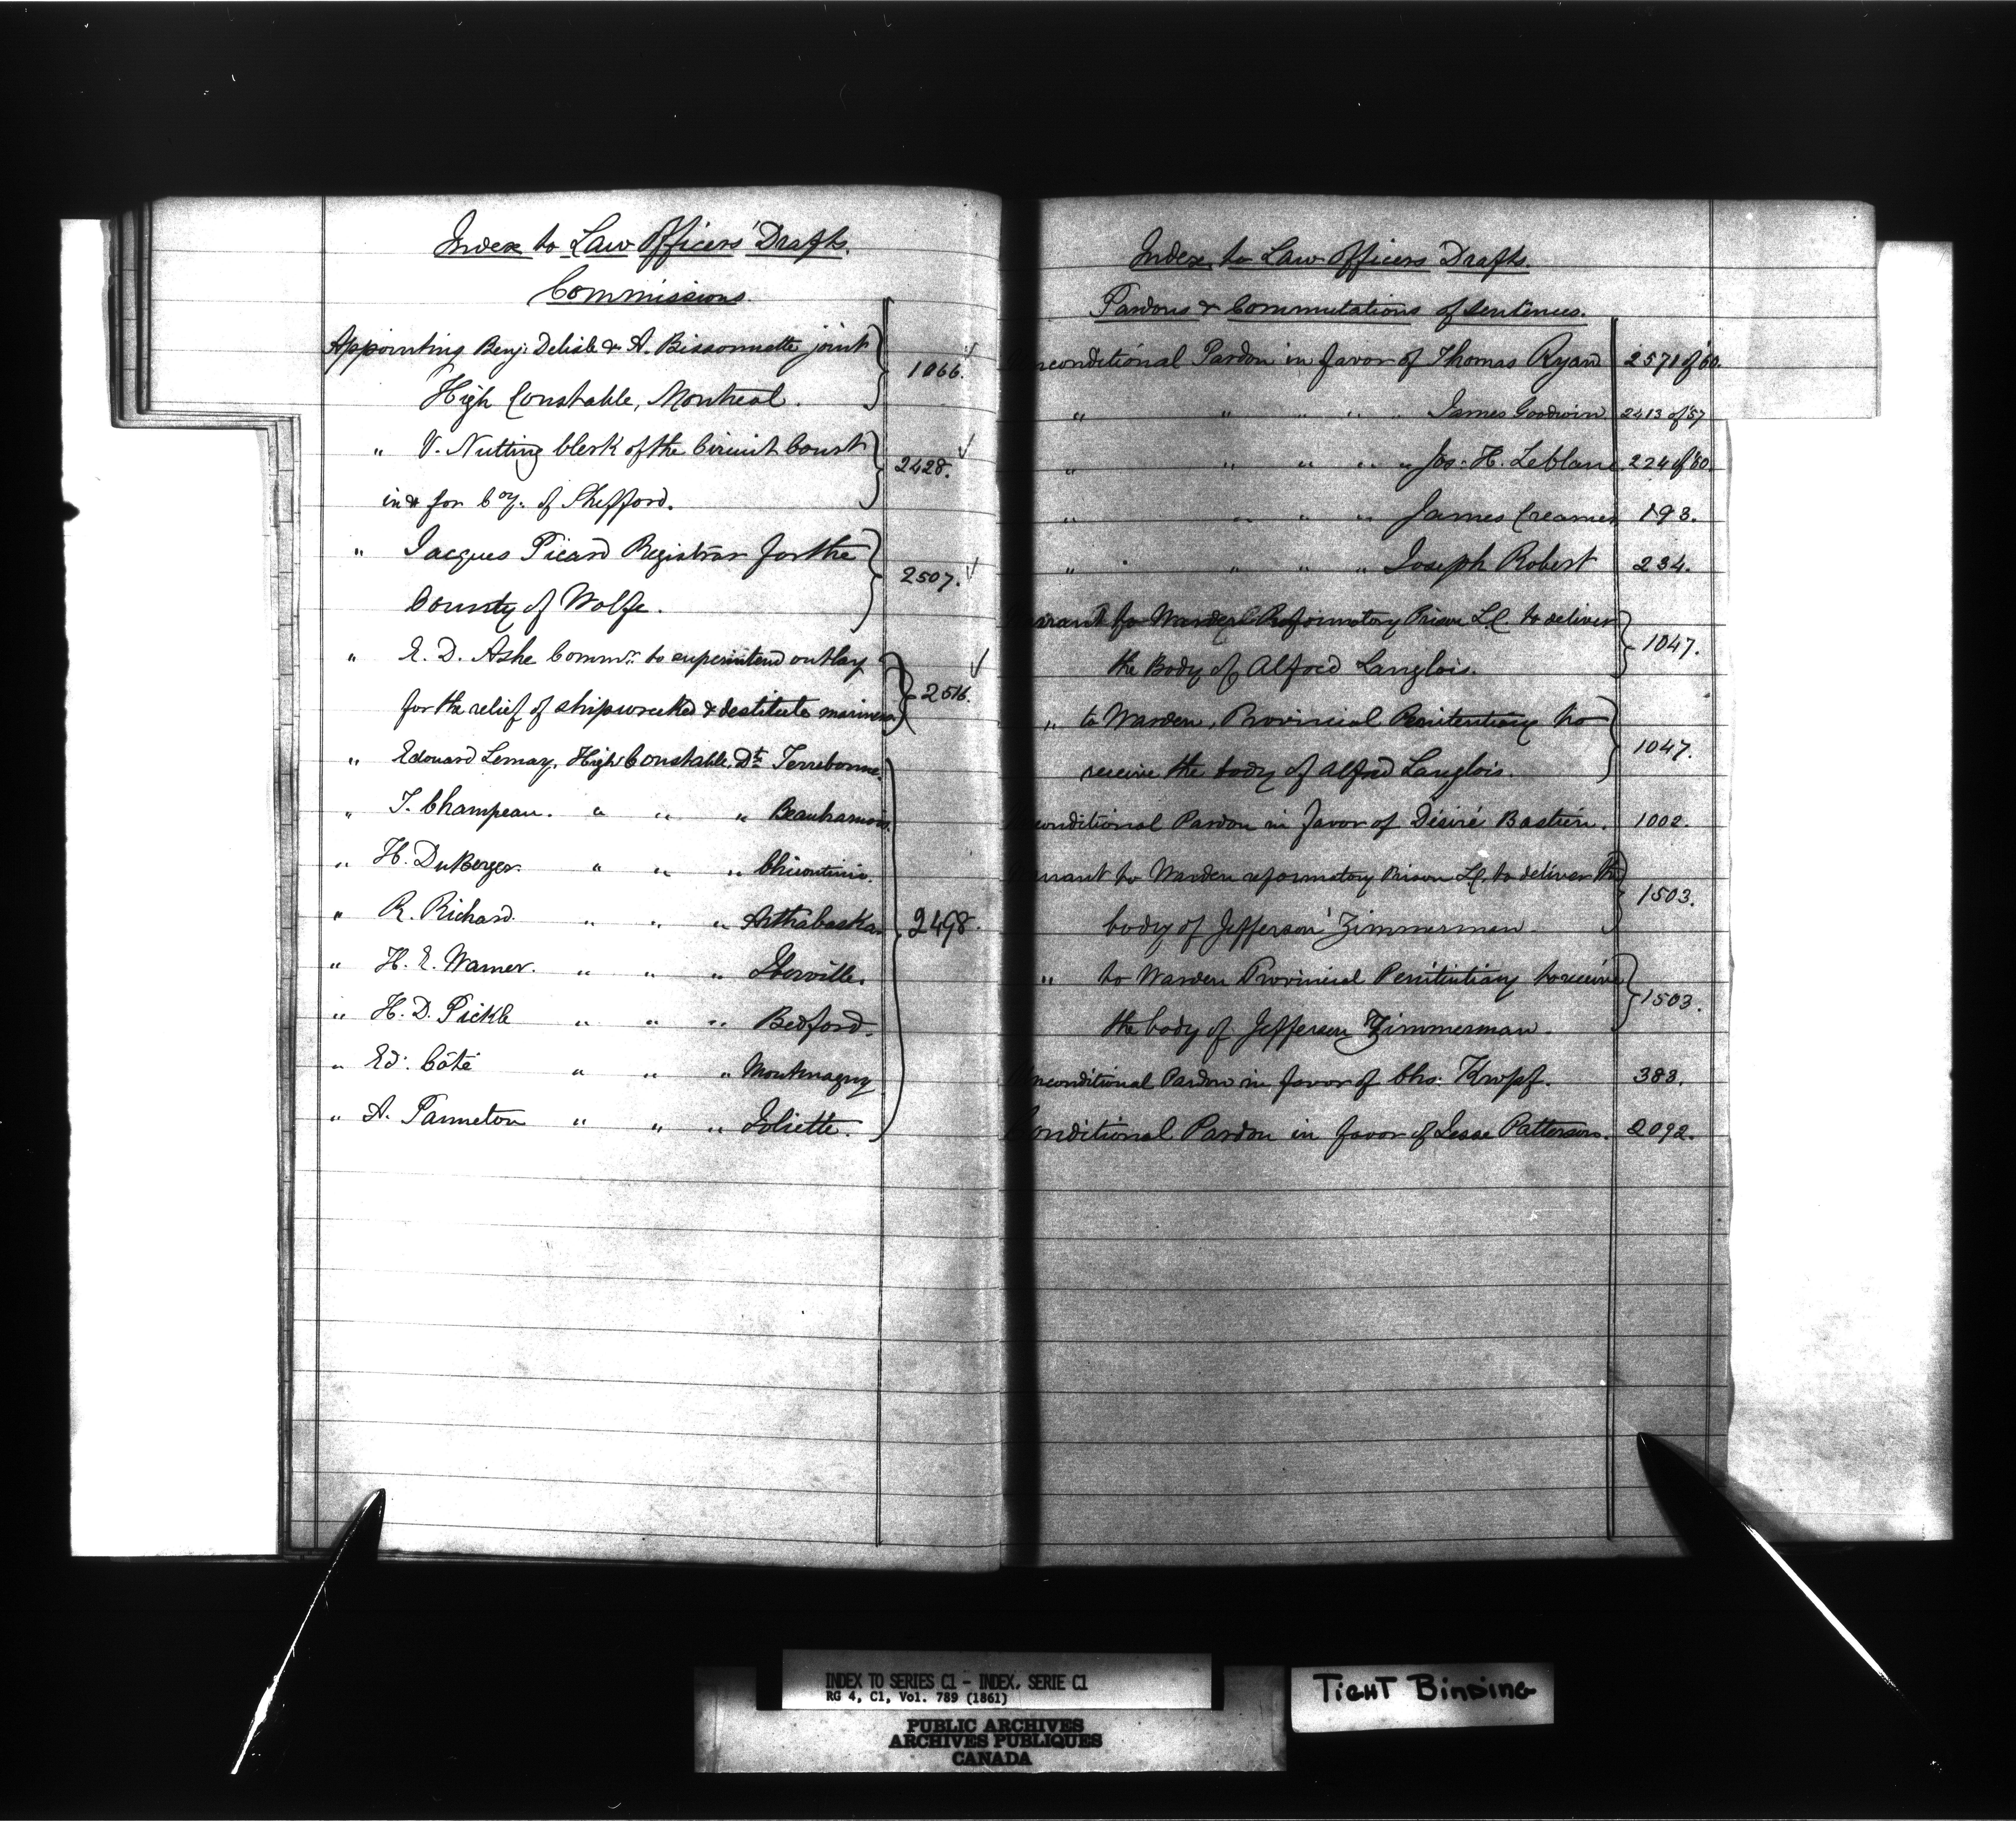 Index to Law Officers' Drafts.
Commissions.
Appointing Benj: Delisle & A. Bissonnette joint
High Constable, Montreal. 1066.
" V. Nutting Clerk of the Circuit Court
in & for Coy. of Shefford. 2428.
" Jacques Picard Registrar for the
County of Wolfe. 2507.
" E. D. Ashe Commr. to superintend outlay
for the relief of shipwrecked & destitute mariners 2516.
" Edouard Lemay, High Constable, Dt. Terrebonne.
" T. Champeau. " " " Beauharnois.
" H. DuBerger. " " " Chicoutimi.
" R. Richard. " " " Arthabaska. 2498.
" H. E. Warner. " " " Iberville.
" H. D. Pickle " " " Bedford.
" Ed: Côté " " " Montmagny
" A. Panneton " " " Joliette.
Index to Law Officers Drafts.
Pardons & Commutations of Sentences.
nconditional Pardon in favor of Thomas Ryan 2571 of '60.
" " " " " James Goodwin 2413 of '57
" " " " " Jos: H. Leblanc 224 of '60.
" " " " James Creamer 193.
" " " " Joseph Robert 234.
rrant to Warden Reformatory Prison L.C. to deliver
the Body of Alfred Langlois. 1047.
" to Warden, Provincial Penitentiary to
receive the body of Alfred Langlois. 1047.
conditional Pardon in favor of Désiré Bastien. 1002.
rrant to Warden reformatory Prison L.C. to deliver the
body of Jefferson Zimmerman. 1503.
" to Warden Provincial Penitentiary to receive
the body of Jefferson Zimmerman. 1503.
Unconditional Pardon in favor of Chs: Kropf. 383.
Conditional Pardon in favor of Jesse Patterson. 2092.
INDEX TO SERIES C1 - INDEX, SERIE C1
RG 4, C1, Vol. 789 (1861)
PUBLIC ARCHIVES
ARCHIVES PUBLIQUES
CANADA
TIGHT BINDING